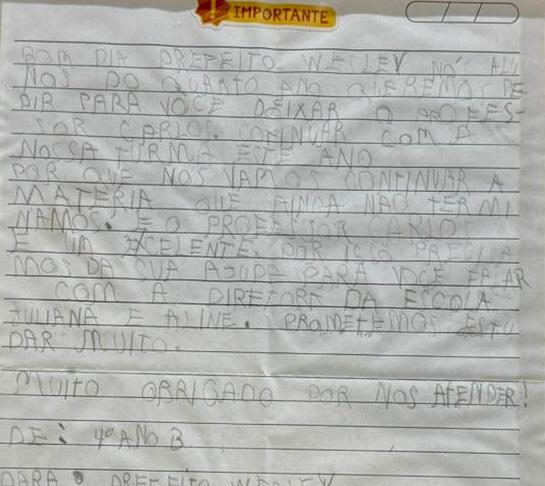 IMPORTANTE
BOM DIA PREFEITO WESLEY NÓS ALU
NOS DO QUARTO ANO QUEREMOS PE
DIR PARA VOCE DEIXAR O PROFES-
SOR CARLOS. CONTINUAR COM A
NOSSA TURMA ESTE ANO
POR QUE NOS VAMOS CONTINUAR A
MATERIA QUE AINDA NÃO TERMI
NAMOS. E O PROFESSOR CARLOS
E UM EXCELENTE. POR ISSO PRECISA
MOS DA SUA AJUDA PARA VOCE FALAR
COM A DIRETORA DA ESCOLA
JULIANA E ALINE. PROMETEMOS ESTU
DAR MUITO.
MUITO OBRIGADO POR NOS ATENDER!
DE: 4º ANO B
PARA O PREFEITO WESLEY